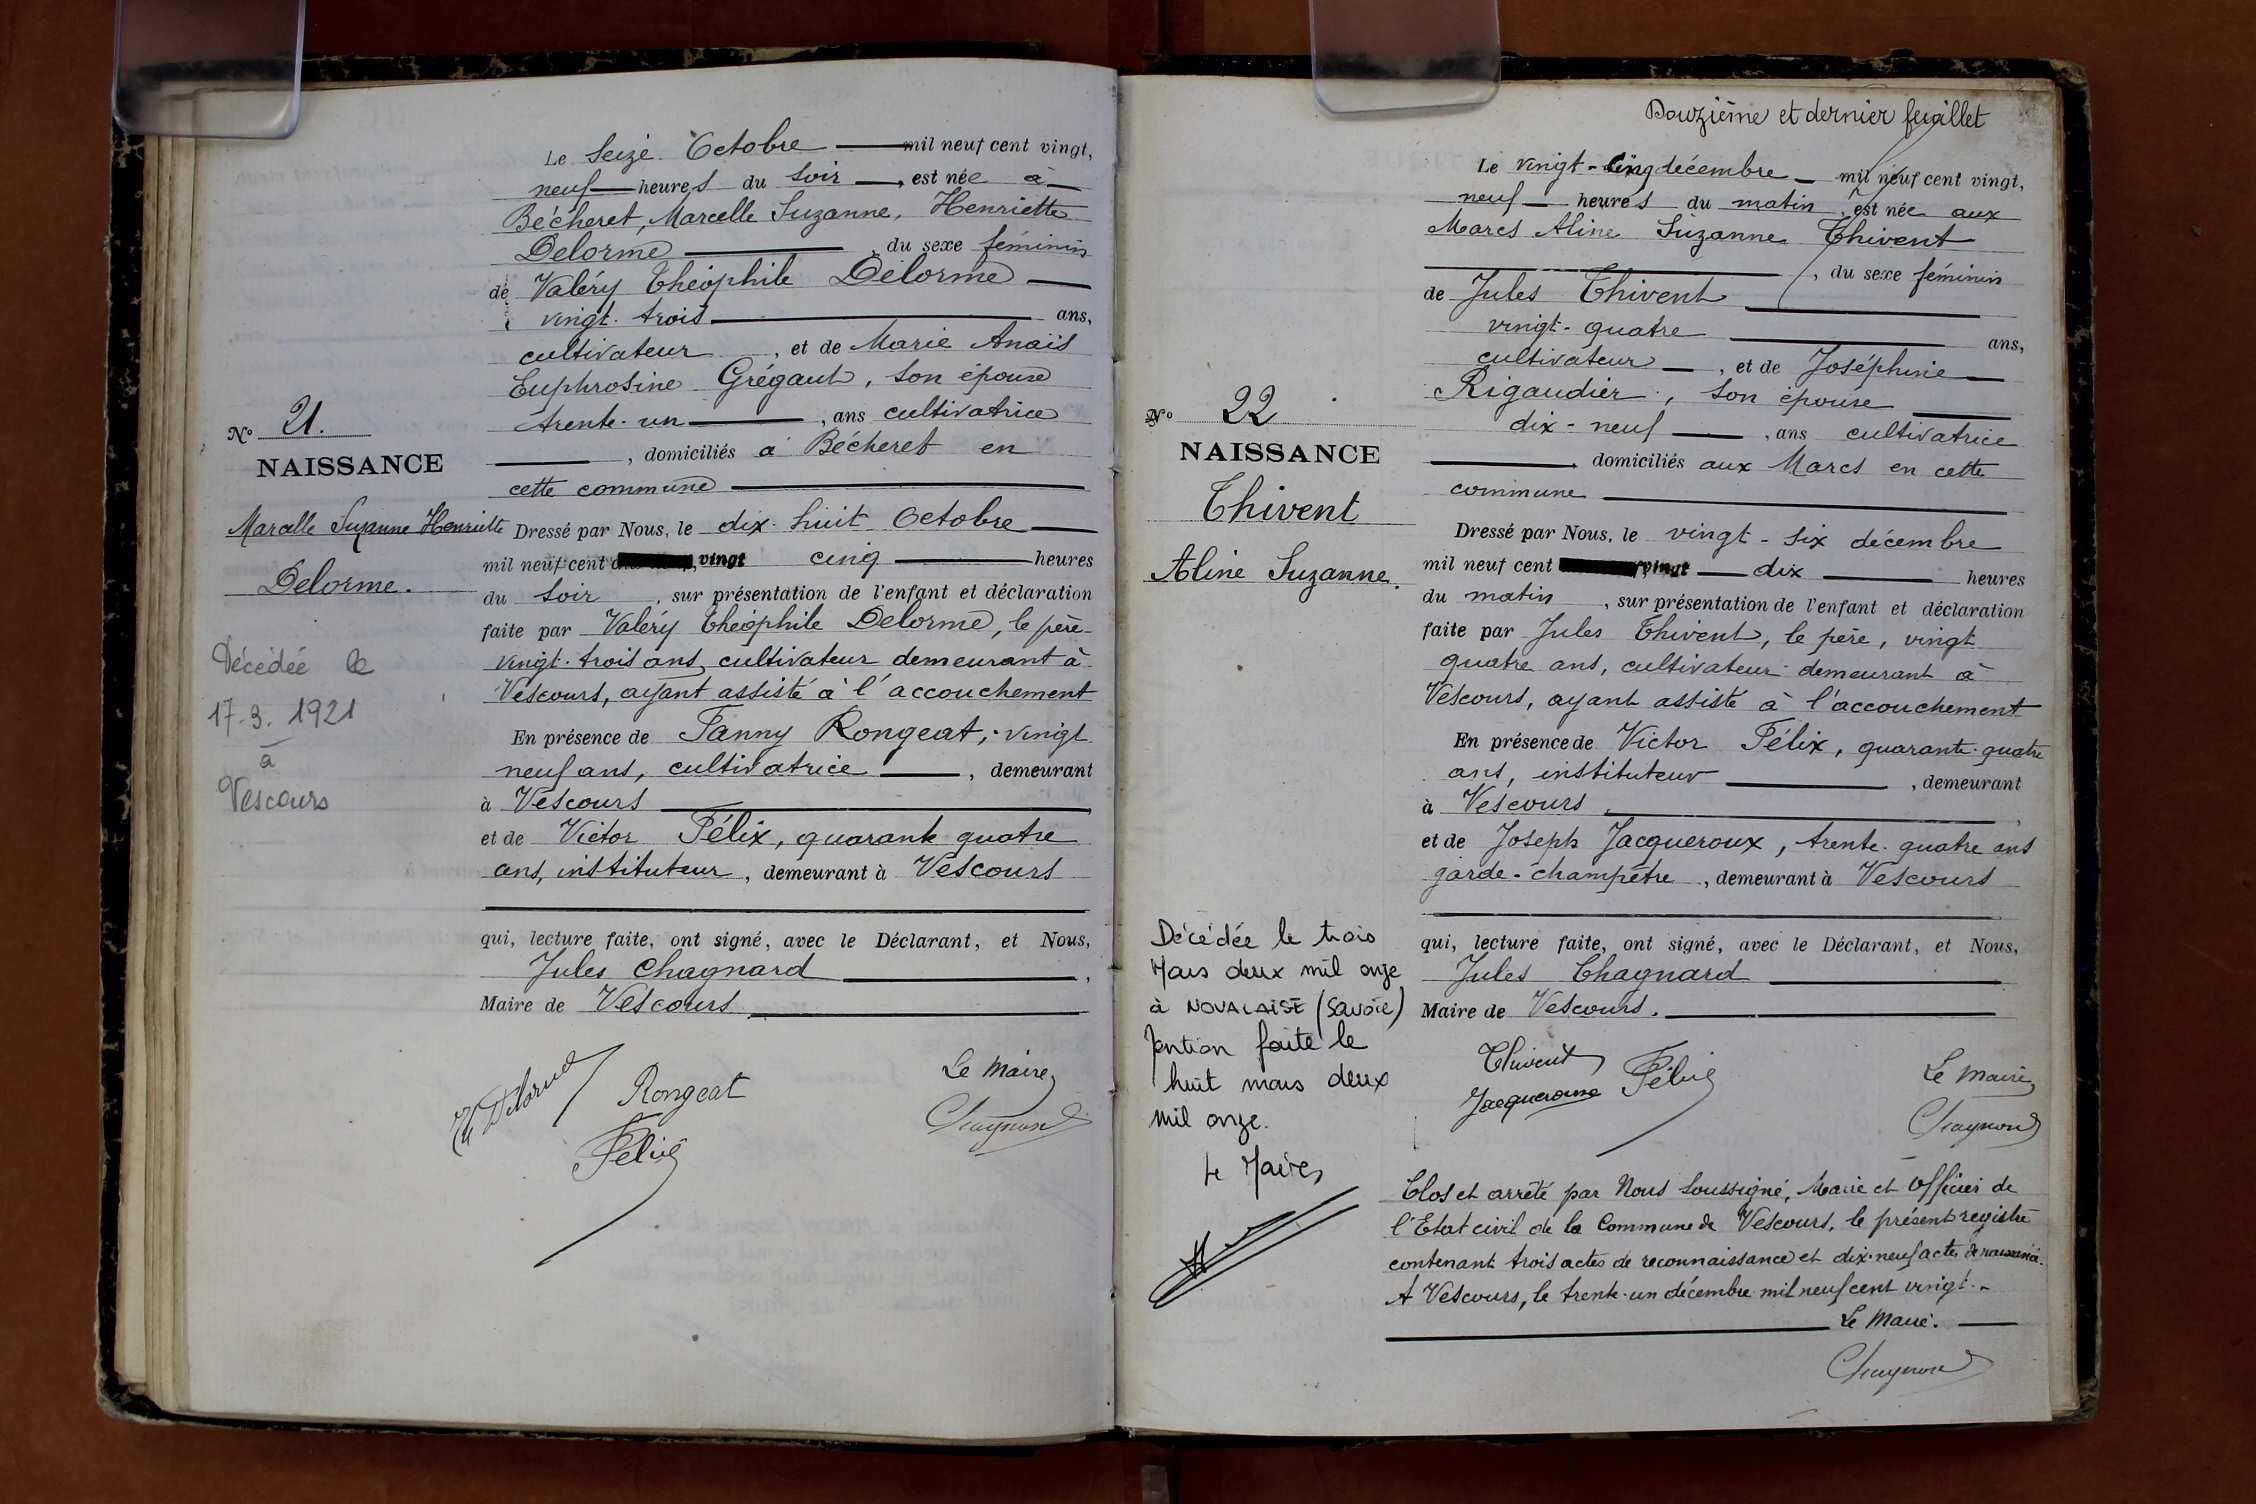 Le Seize Octobre mil neuf cent vingt,
neuf heures du soir, est née à
Bécheret, Marcelle Suzanne, Henriette
Delorme, du sexe féminin
de Valéry Théophile Delorme
vingt-trois ans,
cultivateur, et de Marie Anaïs
Euphrosine Grégaut, son épouse
trente-un, ans cultivatrice
, domiciliés à Bécheret en
cette commune
N° 21.
NAISSANCE
Marcelle Suzanne Henriette
Delorme.
Décédée le
17.3.1921
à
Vescours
Dressé par Nous, le dix-huit Octobre
mil neuf cent vingt cinq heures
du soir, sur présentation de l'enfant et déclaration
faite par Valéry Théophile Delorme, le père
vingt-trois ans, cultivateur demeurant à
Vescours, ayant assisté à l'accouchement
En présence de Fanny Rongeat, vingt
neuf ans, cultivatrice, demeurant
à Vescours
et de Victor Félix, quarante quatre
ans, instituteur, demeurant à Vescours
qui, lecture faite, ont signé, avec le Déclarant, et Nous,
Jules Chagnard,
Maire de Vescours
Delorme Rongeat Le Maire
Félix Chagnard
Douzième et dernier feuillet
Le vingt-cinq décembre mil neuf cent vingt,
neuf heures du matin, est née aux
Marcs Aline Suzanne Thivent
, du sexe féminin
de Jules Thivent
vingt-quatre ans,
cultivateur, et de Joséphine
Rigaudier, son épouse
dix-neuf, ans cultivatrice
domiciliés aux Marcs en cette
commune
N° 22
NAISSANCE
Thivent
Aline Suzanne.
Dressé par Nous, le vingt-six décembre
mil neuf cent vingt dix heures
du matin, sur présentation de l'enfant et déclaration
faite par Jules Thivent, le père, vingt
quatre ans, cultivateur demeurant à
Vescours, ayant assisté à l'accouchement
En présence de Victor Félix, quarante-quatre
ans, instituteur, demeurant
à Vescours,
et de Joseph Jacqueroux, trente-quatre ans
garde-champêtre, demeurant à Vescours
qui, lecture faite, ont signé, avec le Déclarant, et Nous,
Jules Chagnard
Maire de Vescours.
Décédée le trois
Mars deux mil onze
à NOVALAISE (Savoie)
Mention faite le
huit mars deux
mil onze.
Le Maire,
Thivent Félix Le Maire
Jacqueroux Chagnard
Clos et arrêté par Nous soussigné, Maire et Officier de
l'Etat civil de la Commune de Vescours, le présent registre
contenant trois actes de reconnaissance et dix-neuf actes de naissance.
A Vescours, le trente-un décembre mil neuf cent vingt.
Le Maire.
Chagnard